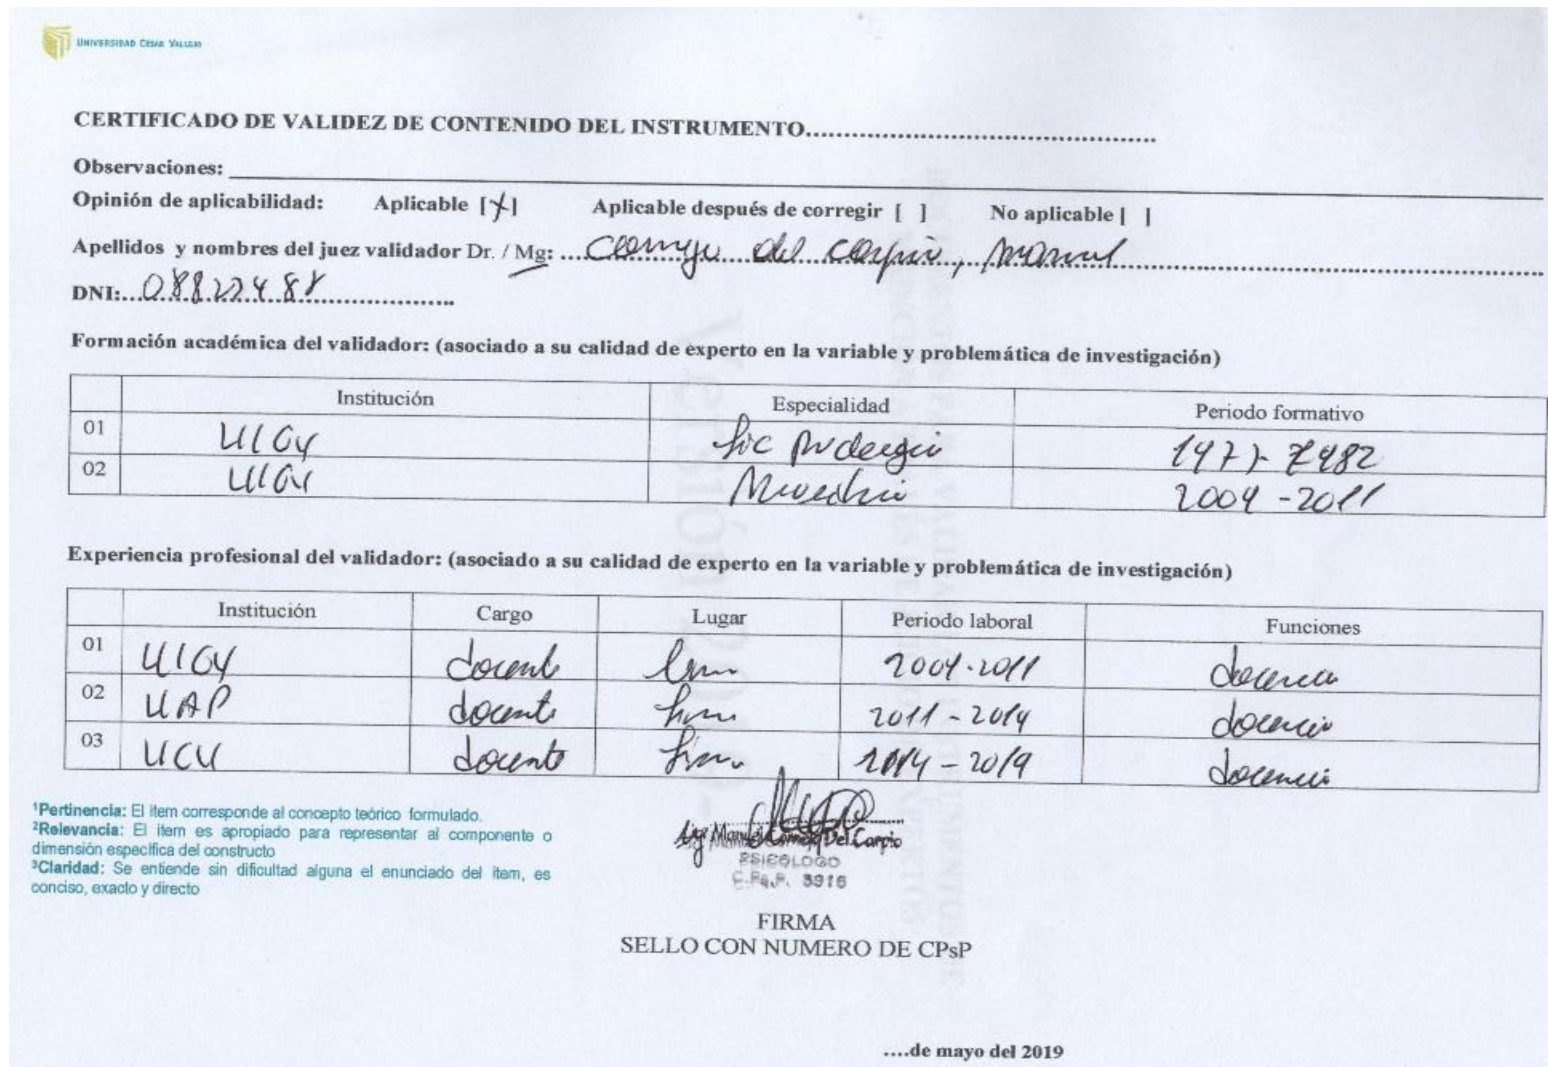 UNIVERSIDAD CESAR VALLEJO
CERTIFICADO DE VALIDEZ DE CONTENIDO DEL INSTRUMENTO..........................................................
Observaciones:
Opinión de aplicabilidad: Aplicable [X] Aplicable después de corregir [ ] No aplicable [ ]
Apellidos y nombres del juez validador Dr. / Mg: ....Cornejo del Carpio, Manuel
DNI:...
Formación académica del validador: (asociado a su calidad de experto en la variable y problemática de investigación)
Institución Especialidad Periodo formativo
01 UIGV Lic
02 UIGV 2004 - 2011
Experiencia profesional del validador: (asociado a su calidad de experto en la variable y problemática de investigación)
Institución Cargo Lugar Periodo laboral Funciones
01 UIGV docente Lima 2004-2011 docencia
02 UAP docente Lima 2011 - 2014 docencia
03 UCV docente Lima 2014 - 2019 docencia
¹Pertinencia: El ítem corresponde al concepto teórico formulado.
²Relevancia: El ítem es apropiado para representar al componente o
dimensión específica del constructo
³Claridad: Se entiende sin dificultad alguna el enunciado del ítem, es
conciso, exacto y directo
Manuel Cornejo Del Carpio
PSICOLOGO
C.Ps.P. 3916
FIRMA
SELLO CON NUMERO DE CPsP
....de mayo del 2019